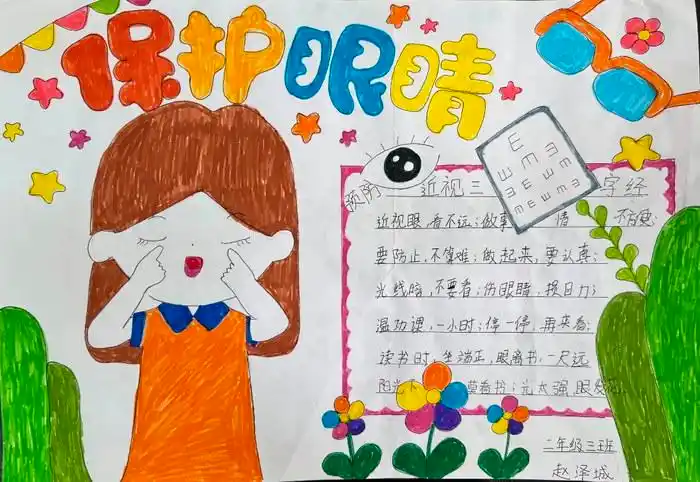 保护眼睛
预防近视三字经
近视眼,看不远;做事情 不方便;
要防止,不算难;做起来,要认真;
光线暗,不要看;伤眼睛,损目力;
温功课,一小时;停一停,再来看;
读书时,坐端正,眼离书,一尺远
阳光 莫看书;光太强,眼发
E
E E
m E m
E m
m E w w m
二年级三班
赵泽城